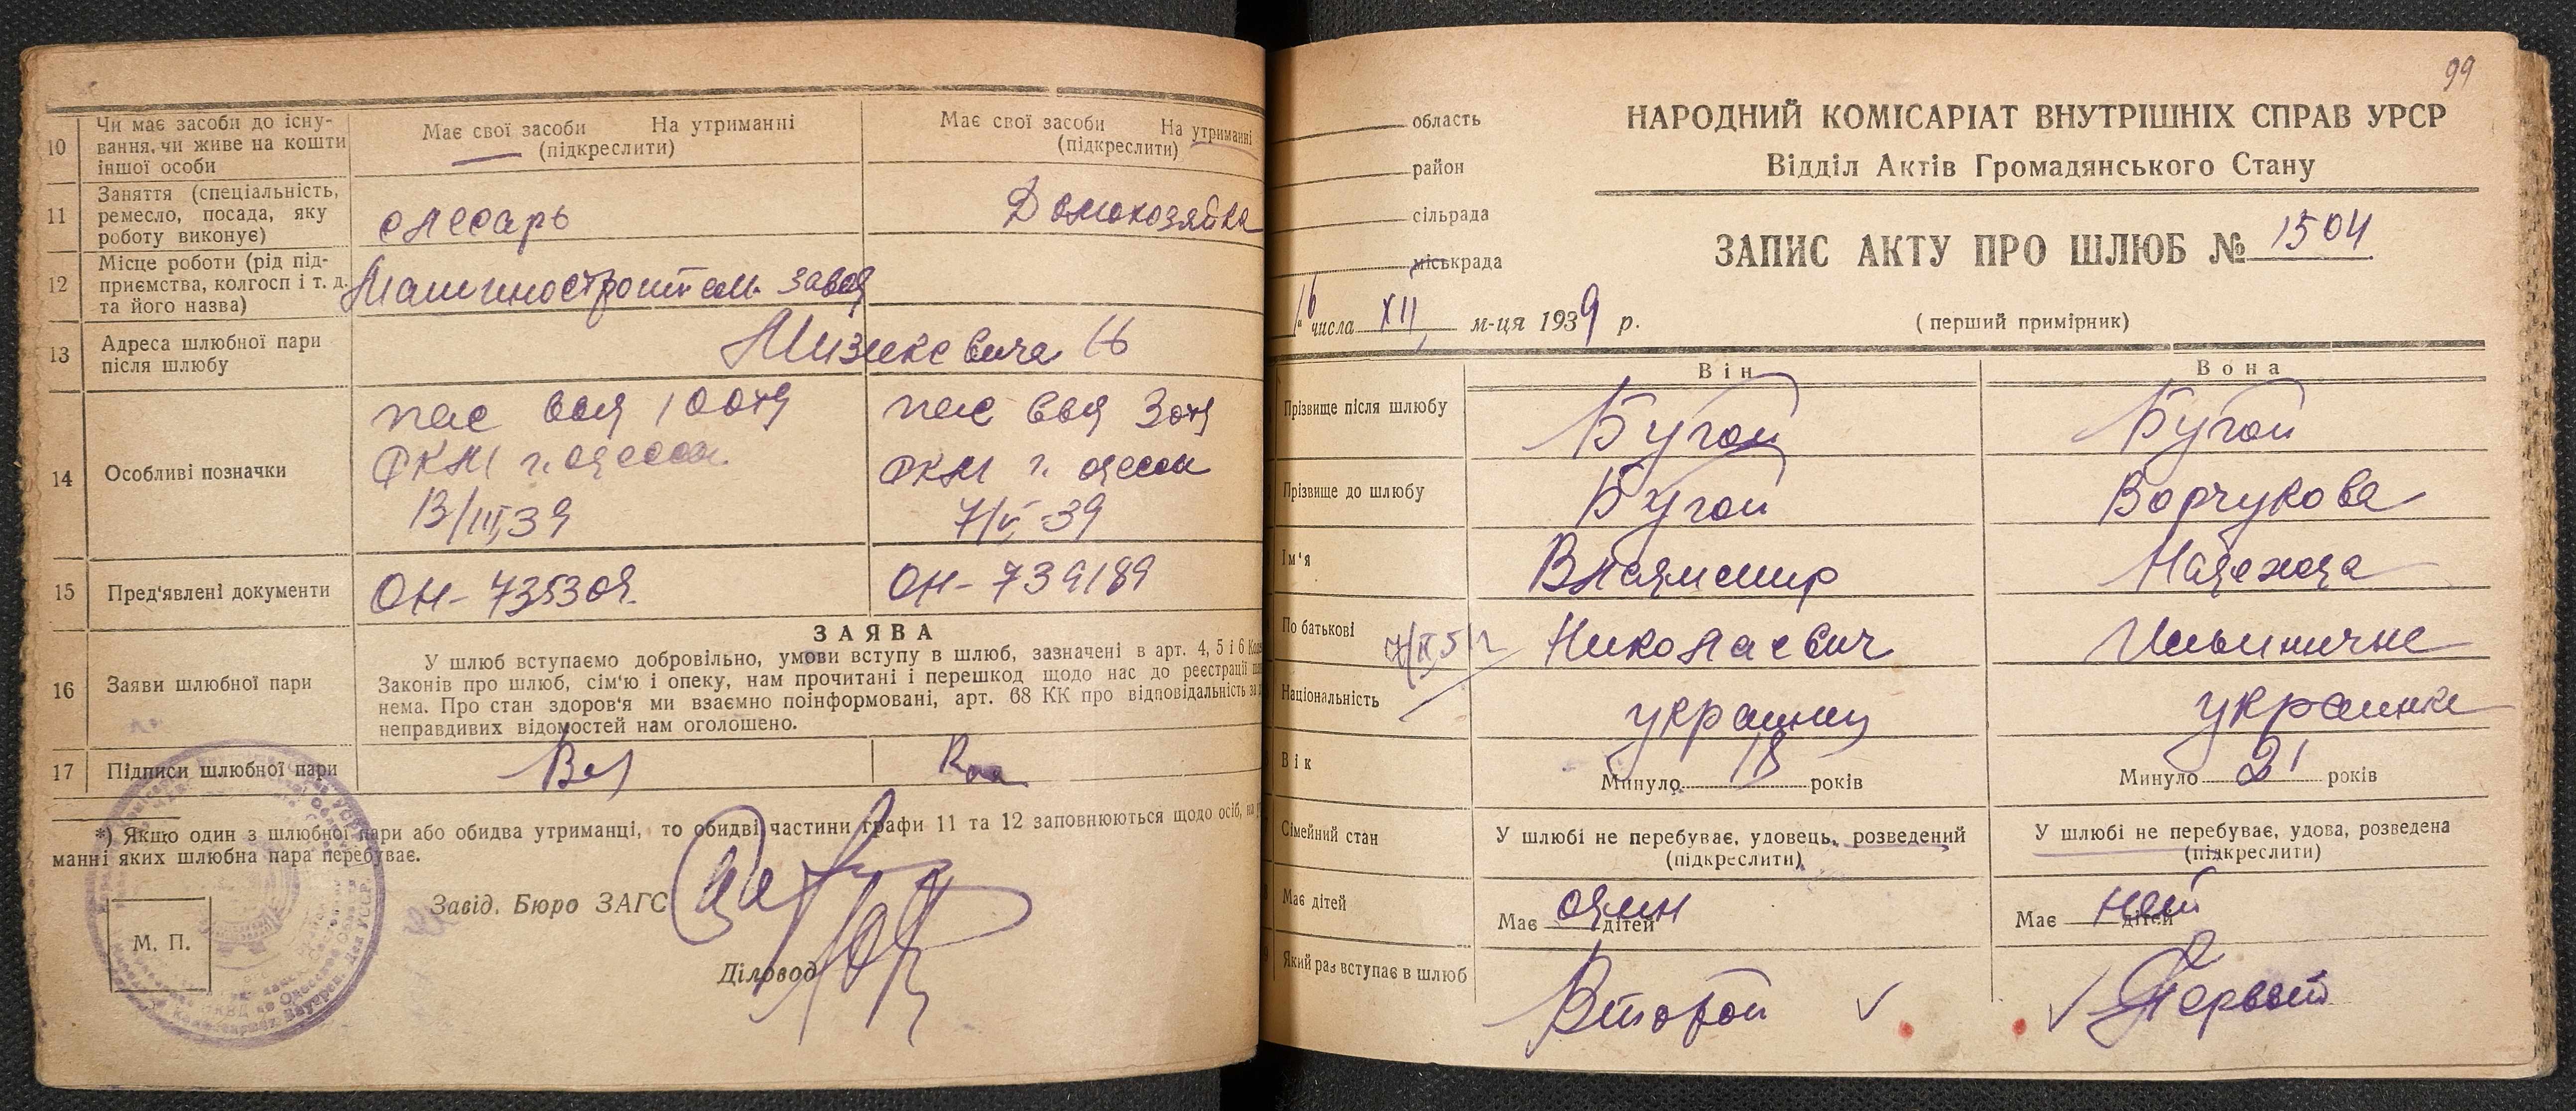 10
Чи має засоби до існу-
вання, чи живе на кошти
іншої особи
Має свої засоби На утриманні
(підкреслити)
Має свої засоби На утриманні
(підкреслити)
11
Заняття (спеціальність,
ремесло, посада, яку
роботу виконує)
слесарь
Домохозяйка
12
Місце роботи (рід під-
приємства, колгосп і т. д.
та його назва)
Машиностроител. завод
13
Адреса шлюбної пари
після шлюбу
Мизикевича 16
14
Особливі позначки
пас выд 10 отд
РКМ г. Одессы
13/III 39
пас выд 3 отд
РКМ г. Одессы
7/V-39
15
Пред'явлені документи
ОН-735309
ОН-739189
16
Заяви шлюбної пари
ЗАЯВА
У шлюб вступаємо добровільно, умови вступу в шлюб, зазначені в арт. 4, 5 і 6
Законів про шлюб, сім'ю і опеку, нам прочитані і перешкод щодо нас до реєстрації
нема. Про стан здоров'я ми взаємно поінформовані, арт. 68 КК про відповідальність за
неправдивих відомостей нам оголошено.
17
Підписи шлюбної пари
*) Якщо один з шлюбної пари або обидва утриманці, то обидві частини графи 11 та 12 заповнюються щодо осіб, на
манні яких шлюбна пара перебуває.
Завід. Бюро ЗАГС
М. П.
Діловод
99
область
район
сільрада
міськрада
НАРОДНИЙ КОМІСАРІАТ ВНУТРІШНІХ СПРАВ УРСР
Відділ Актів Громадянського Стану
ЗАПИС АКТУ ПРО ШЛЮБ № 1504
16 числа XII м-ця 1939 р.
(перший примірник)
Він
Вона
Прізвище після шлюбу
Бугой
Бугой
Прізвище до шлюбу
Бугой
Ворчукова
Ім'я
Владимир
Надежда
По батькові
Николаевич
Ильинична
Національність
украинец
украинка
Вік
Минуло років
Минуло 21 років
Сімейний стан
У шлюбі не перебуває, удовець, розведений
(підкреслити)
У шлюбі не перебуває, удова, розведена
(підкреслити)
Має дітей
Має один дітей
Має нет дітей
Який раз вступає в шлюб
Второй
Первый